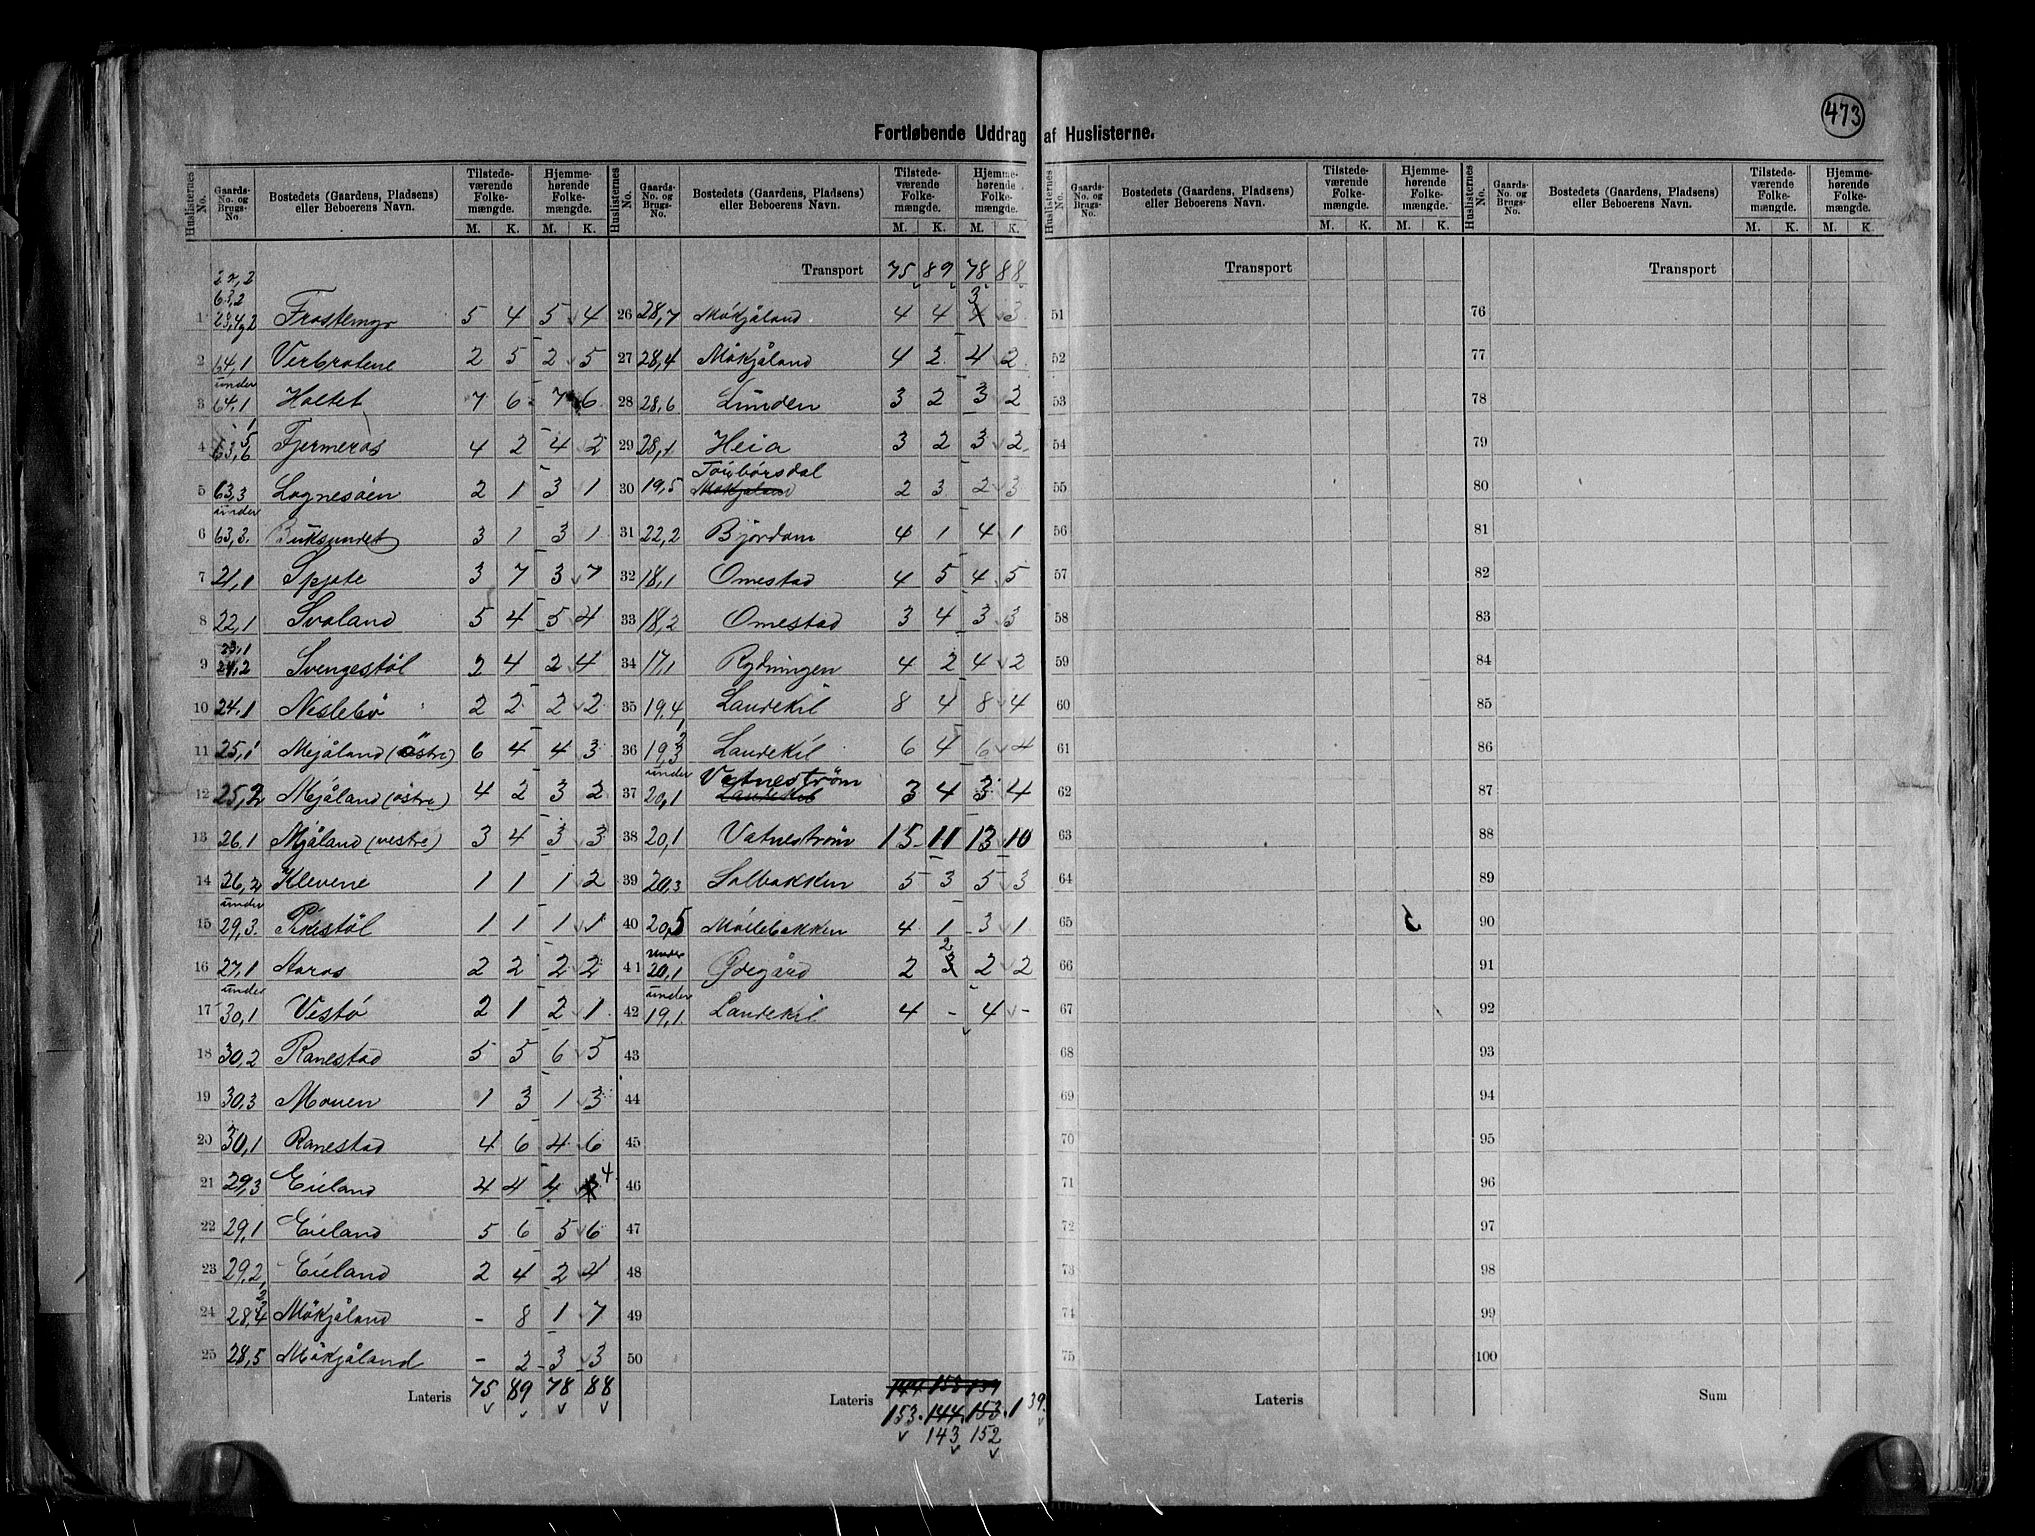 473
Fortløbende Uddrag af Huslisterne.
Huslisternes No. | Gaards-No. og Brugs-No. | Bostedets (Gaardens, Pladsens) eller Beboerens Navn. | Tilstedeværende Folkemængde. M. K. | Hjemmehørende Folkemængde. M. K.
1 27,2 63,2 28,4,2 Frostemyr 5 4 5 4
2 64,1 Verbratene 2 5 2 5
3 under 64,1 Holtet 7 6 7 6
4 63,6 Fjermeros 4 2 4 2
5 63,3 Lognesøen 2 1 3 1
6 under 63,3. Buksundet 3 1 3 1
7 21,1 Spjote 3 7 3 7
8 22,1 Svaland 5 4 5 4
9 23,1 21,2 Svengestøl 2 4 2 4
10 24,1 Neslebø 2 2 2 2
11 25,1 Mejåland (östre) 6 4 4 3
12 25,2 Mejåland (östre) 4 2 3 2
13 26,1 Mjåland (vestre) 3 4 3 3
14 26,2 Klevene 1 1 1 2
15 under 29,3. Pikestøl 1 1 1 1
16 27,1 Aaros 2 2 2 2
17 under 30,1 Vestø 2 1 2 1
18 30,2 Ranestad 5 5 6 5
19 30,3 Mouen 1 3 1 3
20 30,1 Ranestad 4 6 4 6
21 29,3 Eieland 4 4 4 4
22 29,1 Eieland 5 6 5 6
23 29,2 Eieland 2 4 2 4
24 28,4 Mökjåland - 8 1 7
25 28,5 Mökjåland - 2 3 3
Lateris 75 89 78 88
Huslisternes No. | Gaards-No. og Brugs-No. | Bostedets (Gaardens, Pladsens) eller Beboerens Navn. | Tilstedeværende Folkemængde. M. K. | Hjemmehørende Folkemængde. M. K.
Transport 75 89 78 88
26 28,7 Mökjåland 4 4 4 3 3
27 28,4 Mökjåland 4 2 4 2
28 28,6 Lunden 3 2 3 2
29 28,1 Heia 3 2 3 2
30 19,5 Toubørsdal Mökjåland 2 3 2 3
31 22,2 Bjørdam 4 1 4 1
32 18,1 Omestad 4 5 4 5
33 18,2 Omestad 3 4 3 3
34 17,1 Rydningen 4 2 4 2
35 19,4 Laudekil 8 4 8 4
36 19,3 Laudekil 6 4 6 4
37 under 20,1 Vatneström Laudekil 3 4 3 4
38 20,1 Vatneström 15 11 13 10
39 20,3 Solbakken 5 3 5 3
40 20,5 Möllebakken 4 1 3 1
41 under 20,1 Ødegård 2 3 2 2 2
42 under 19,1 Laudekil 4 - 4 -
43
44
45
46
47
48
49
50
Lateris 144 153 139
153. 144. 153. 139.
143 152
Huslisternes No. | Gaards-No. og Brugs-No. | Bostedets (Gaardens, Pladsens) eller Beboerens Navn. | Tilstedeværende Folkemængde. M. K. | Hjemmehørende Folkemængde. M. K.
Transport
51
52
53
54
55
56
57
58
59
60
61
62
63
64
65
66
67
68
69
70
71
72
73
74
75
Lateris
Huslisternes No. | Gaards-No. og Brugs-No. | Bostedets (Gaardens, Pladsens) eller Beboerens Navn. | Tilstedeværende Folkemængde. M. K. | Hjemmehørende Folkemængde. M. K.
Transport
76
77
78
79
80
81
82
83
84
85
86
87
88
89
90
91
92
93
94
95
96
97
98
99
100
Sum